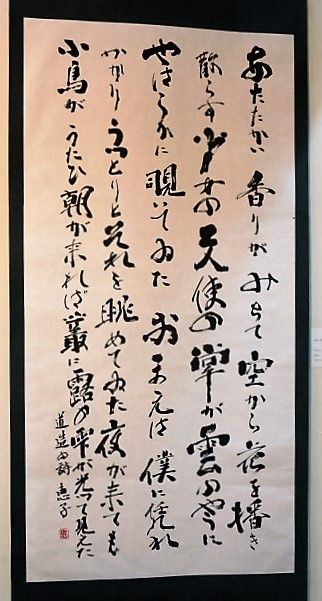 あたたかい香りがみちて空から花を播き
散らす少女の天使の掌が雲のやうに
やはらかに覗いてゐたおまえは僕に凭れ
かかりうつとりとそれを眺めてゐた夜が来ても
小鳥がうたひ朝が来れば叢に露の雫が光つて見えた
道造の詩 恵子